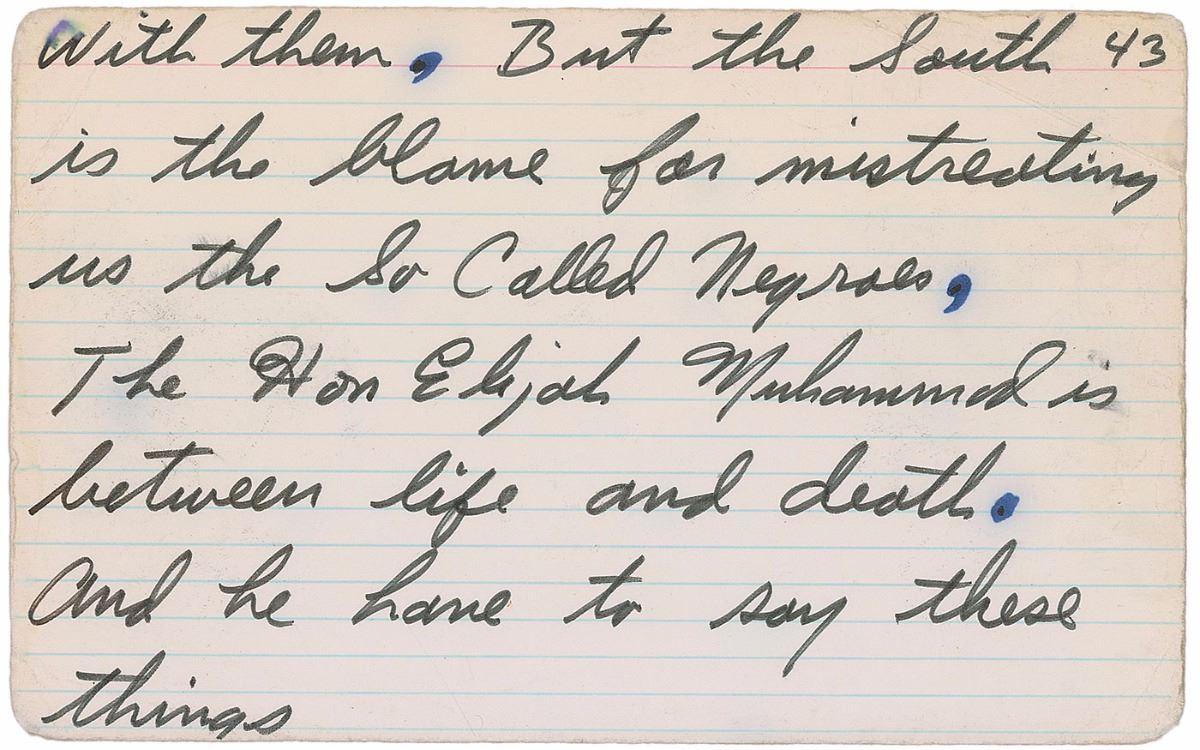 With them, But the South 43
is the blame for mistreating
us the So Called Negroes,
The Hon Elijah Muhammad is
between life and death.
And he have to say these
things